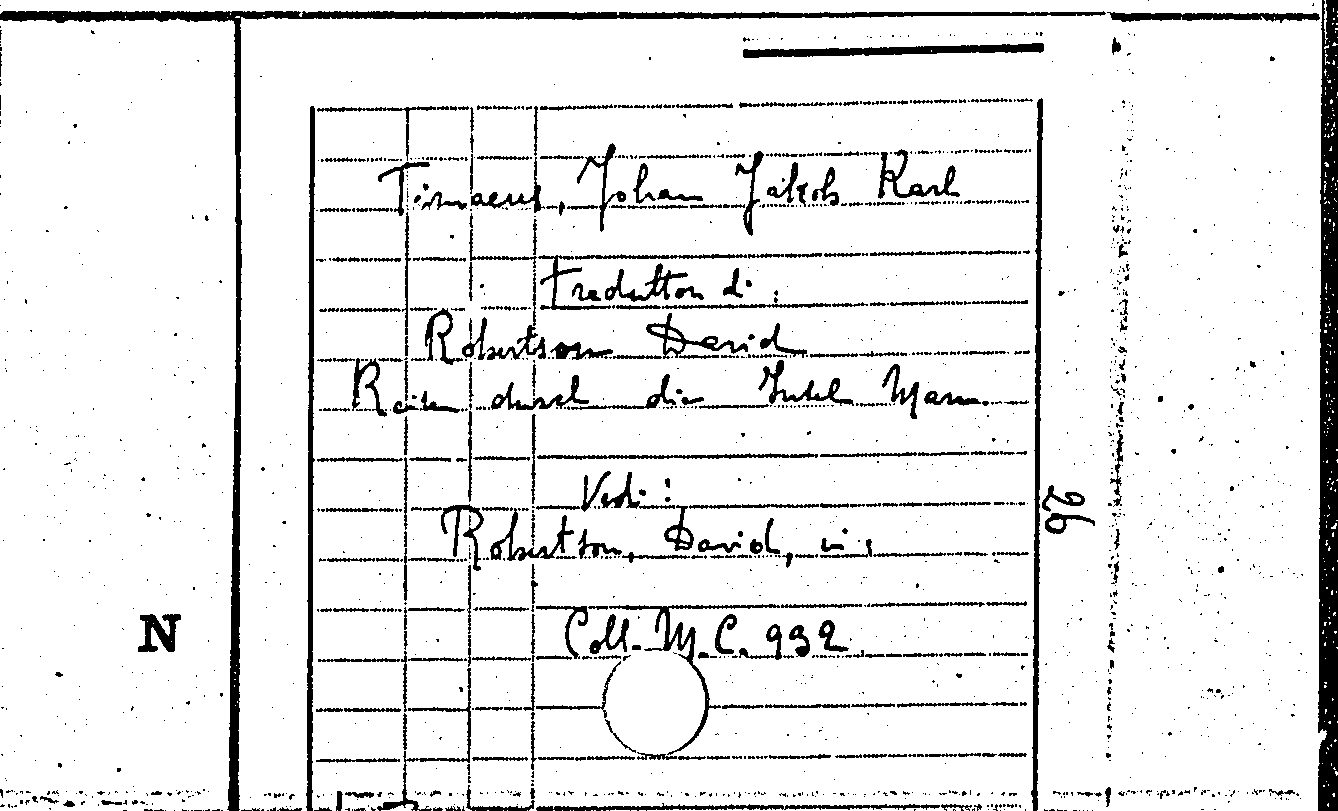 Timaeus, Johan Jakob Karl
traduttor di:
Robertson David
Reise durch die Insel Mann.
Vedi:
Robertson, David, in:
26
Coll. M.C. 932.
N